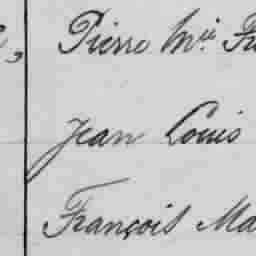 Pierre Mie Fr
Jean Louis
François Ma